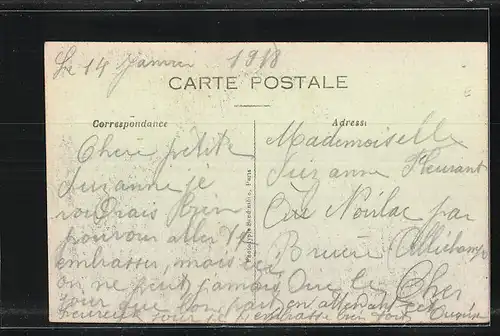 Le 14 Janvier 1918
CARTE POSTALE
Correspondance
Adresse
Chère petite
Suzanne je
voudrais bien
pouvoir aller
embrasser, mais
on ne peut jamais
jour que l'on
heureux jour je t'embrasse bien fort
Mademoiselle
Suzanne Fleurant
Noirlac par
Bruère Allichamps
Cher